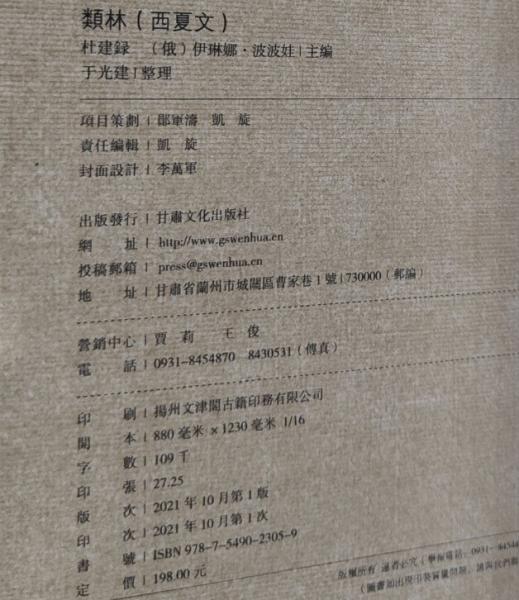 類林（西夏文）
杜建録 （俄）伊琳娜·波波娃|主編
于光建|整理
項目策劃|鄖軍濤 凱 旋
責任編輯|凱 旋
封面設計|李萬軍
出版發行|甘肅文化出版社
網 址|http://www.gswenhua.cn
投稿郵箱|press@gswenhua.cn
地 址|甘肅省蘭州市城關區曹家巷1號|730000（郵編）
營銷中心|賈 莉 王 俊
電 話|0931-8454870 8430531（傳真）
印 刷|揚州文津閣古籍印務有限公司
開 本|880毫米×1230毫米 1/16
字 數|109千
印 張|27.25
版 次|2021年10月第1版
印 次|2021年10月第1次
書 號|ISBN 978-7-5490-2305-9
定 價|198.00元
版權所有 違者必究（舉報電話：0931-84544
（圖書如出現印裝質量問題，請與我們聯